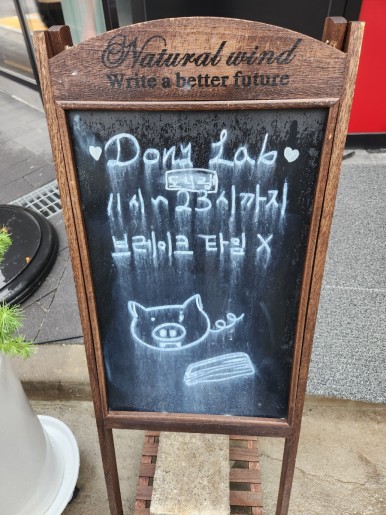 Natural wind
Write a better future
Dony Lab
11시~23시까지
브레이크 타임 X